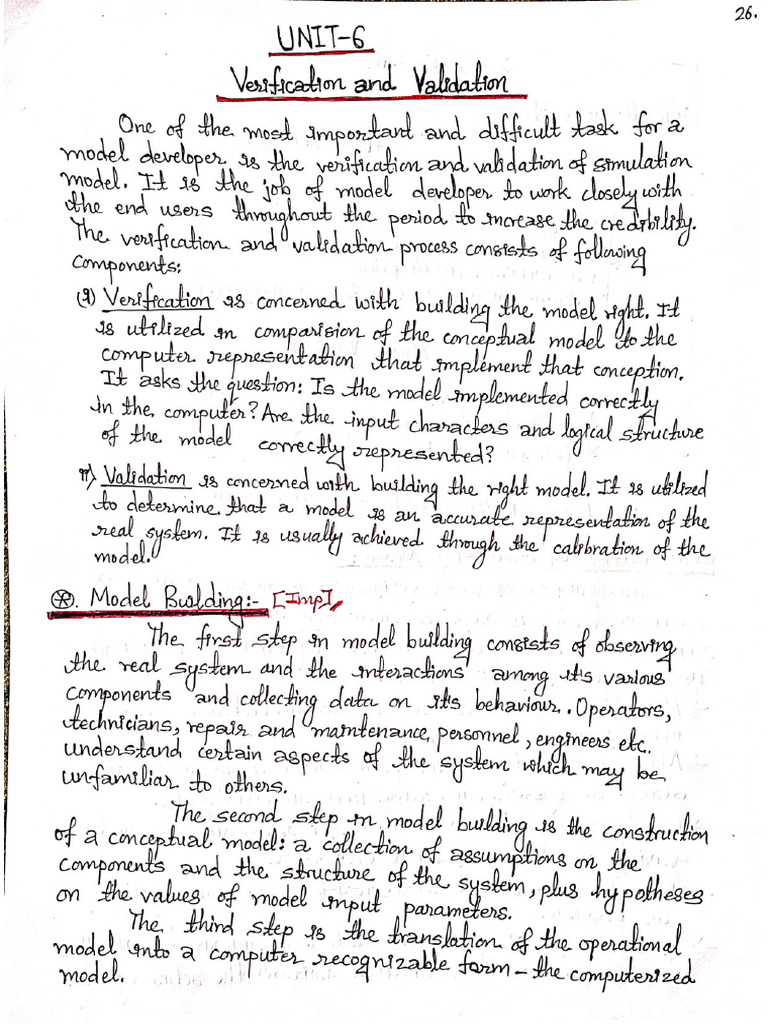 26.
UNIT-6
Verification and Validation
One of the most important and difficult task for a
model developer is the verification and validation of simulation
model. It is the job of model developer to work closely with
the end users throughout the period to increase the credibility.
The verification and validation process consists of following
components:
(i) Verification is concerned with building the model right. It
is utilized in comparision of the conceptual model to the
computer representation that implement that conception.
It asks the question: Is the model implemented correctly
in the computer? Are the input characters and logical structure
of the model correctly represented?
ii) Validation is concerned with building the right model. It is utilized
to determine that a model is an accurate representation of the
real system. It is usually achieved through the calibration of the
model.
⊛. Model Building:- [Imp]
The first step in model building consists of observing
the real system and the interactions among it's various
components and collecting data on it's behaviour. Operators,
technicians, repair and maintenance, personnel, engineers etc.
understand certain aspects of the system which may be
unfamiliar to others.
The second step in model building is the construction
of a conceptual model: a collection of assumptions on the
components and the structure of the system, plus hypotheses
on the values of model input parameters.
The third step is the translation of the operational
model into a computer recognizable form – the computerized
model.